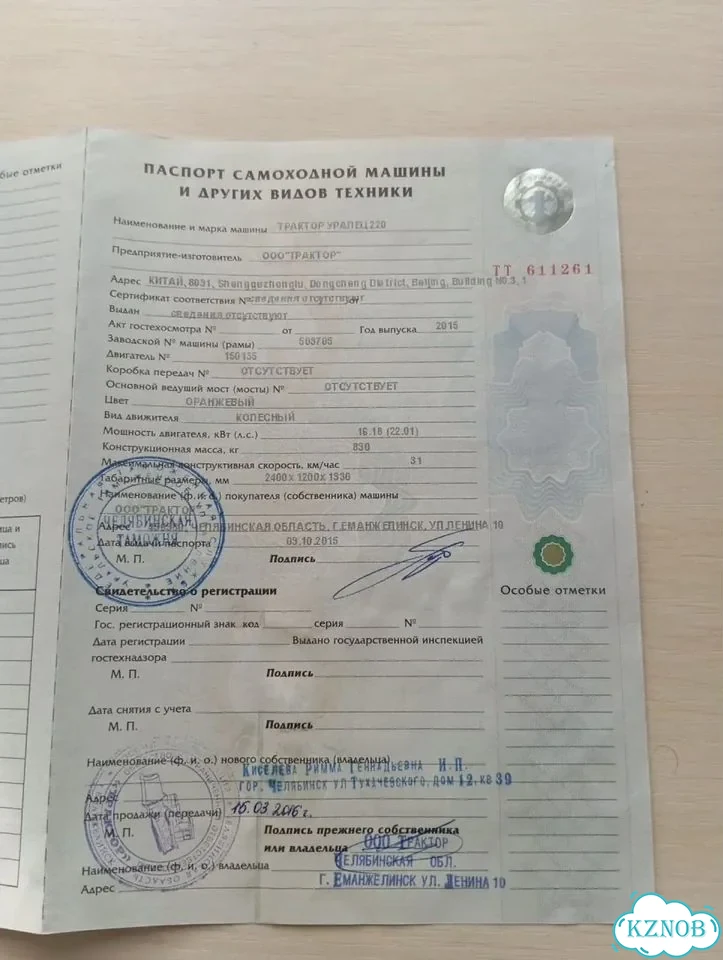 ые отметки
ПАСПОРТ САМОХОДНОЙ МАШИНЫ
И ДРУГИХ ВИДОВ ТЕХНИКИ
Наименование и марка машины ТРАКТОР УРАЛЕЦ 220
Предприятие-изготовитель ООО"ТРАКТОР"
ТТ 611261
Адрес КИТАЙ, 8031, Shengguzhonglu, Dongcheng District, Beijing, Building No.3, 1
Сертификат соответствия № сведения отсутствуют от
Выдан сведения отсутствуют
Акт гостехосмотра № от Год выпуска 2015
Заводской № машины (рамы) 503705
Двигатель № 150135
Коробка передач № ОТСУТСТВУЕТ
Основной ведущий мост (мосты) № ОТСУТСТВУЕТ
Цвет ОРАНЖЕВЫЙ
Вид движителя КОЛЕСНЫЙ
Мощность двигателя, кВт (л.с.) 16.18 (22.01)
Конструкционная масса, кг 830
Максимальная конструктивная скорость, км/час 31
Габаритные размеры, мм 2400х1200х1336
Наименование (ф. и. о.) покупателя (собственника) машины
ООО"ТРАКТОР"
Адрес ЧЕЛЯБИНСКАЯ ОБЛАСТЬ, Г.ЕМАНЖЕЛИНСК, УЛ ЛЕНИНА 10
ЧЕЛЯБИНСКАЯ
ТАМОЖНЯ
Дата выдачи паспорта 03.10.2015
М. П. Подпись
Свидетельство о регистрации
Особые отметки
Серия №
Гос. регистрационный знак код серия №
Дата регистрации Выдано государственной инспекцией
гостехнадзора
М. П. Подпись
Дата снятия с учета
М. П. Подпись
Наименование (ф. и. о.) нового собственника (владельца)
КИСЕЛЕВА РИММА ГЕННАДЬЕВНА И.П.
ГОР. ЧЕЛЯБИНСК УЛ ТУХАЧЕВСКОГО, ДОМ 12, КВ 39
Адрес
Дата продажи (передачи) 15.03.2016 г.
М. П. Подпись прежнего собственника
или владельца ООО ТРАКТОР
ЧЕЛЯБИНСКАЯ ОБЛ.
Наименование (ф. и. о.) владельца
Г. ЕМАНЖЕЛИНСК УЛ. ЛЕНИНА 10
Адрес
KZNOB